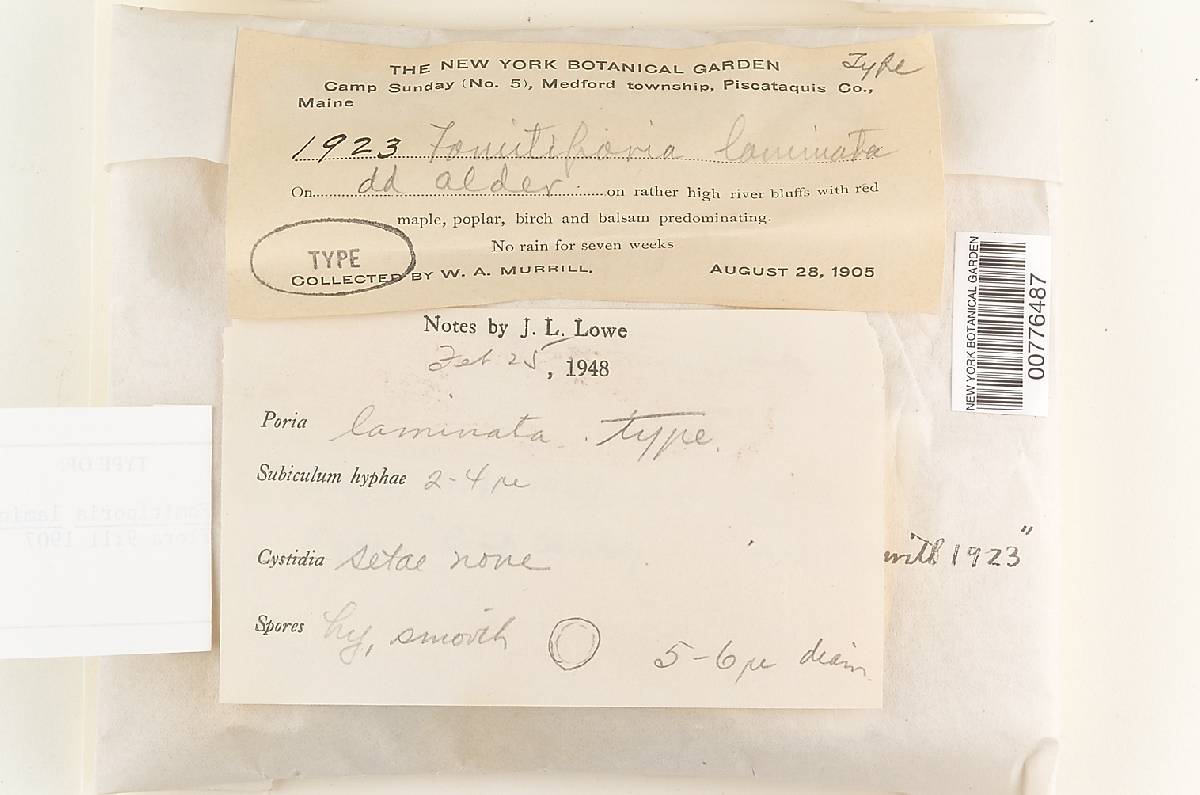 THE NEW YORK BOTANICAL GARDEN Type
Camp Sunday (No. 5), Medford township, Piscataquis Co.,
Maine
1923 Fomitiporia laminata
On dd alder on rather high river bluffs with red
maple, poplar, birch and balsam predominating.
No rain for seven weeks
TYPE
COLLECTED BY W. A. MURRILL. AUGUST 28, 1905
NEW YORK BOTANICAL GARDEN
00776487
Notes by J. L. Lowe
Feb 25, 1948
Poria laminata. type.
Subiculum hyphae 2-4 µ
Cystidia setae none
Spores hy, smooth 5-6 µ diam
with 1923"
TYPE OF:
1907